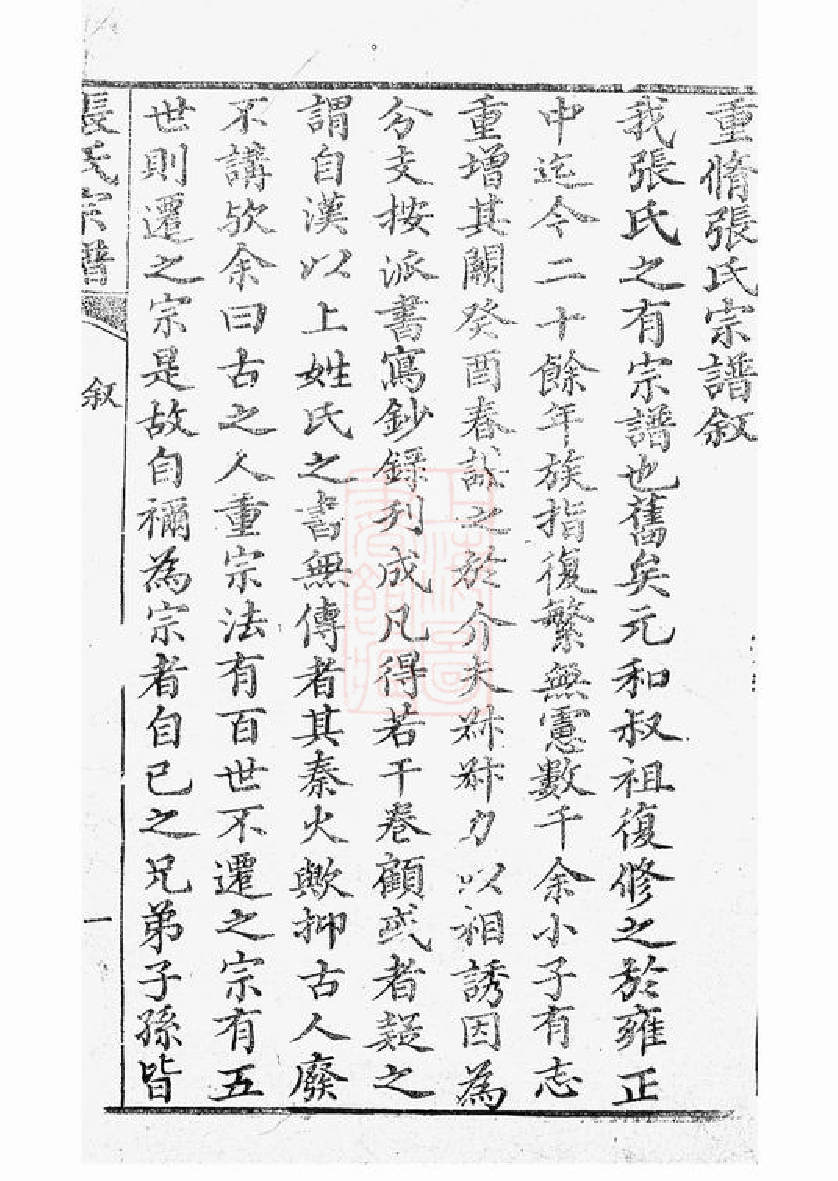 重脩張氏宗譜叙
我張氏之有宗譜也舊矣元和叔祖復修之於雍正
中迄今二十餘年族指復繁無慮數千余小子有志
重增其闕癸酉春謀之於介夫鉌鉌力以相誘因為
分支按派書寫鈔錄列成凡得若干卷顧或者疑之
謂自漢以上姓氏之書無傳者其秦火歟抑古人廢
不講欤余曰古之人重宗法有百世不遷之宗有五
世則遷之宗是故自禰為宗者自己之兄弟子孫皆
張氏宗譜
叙
一